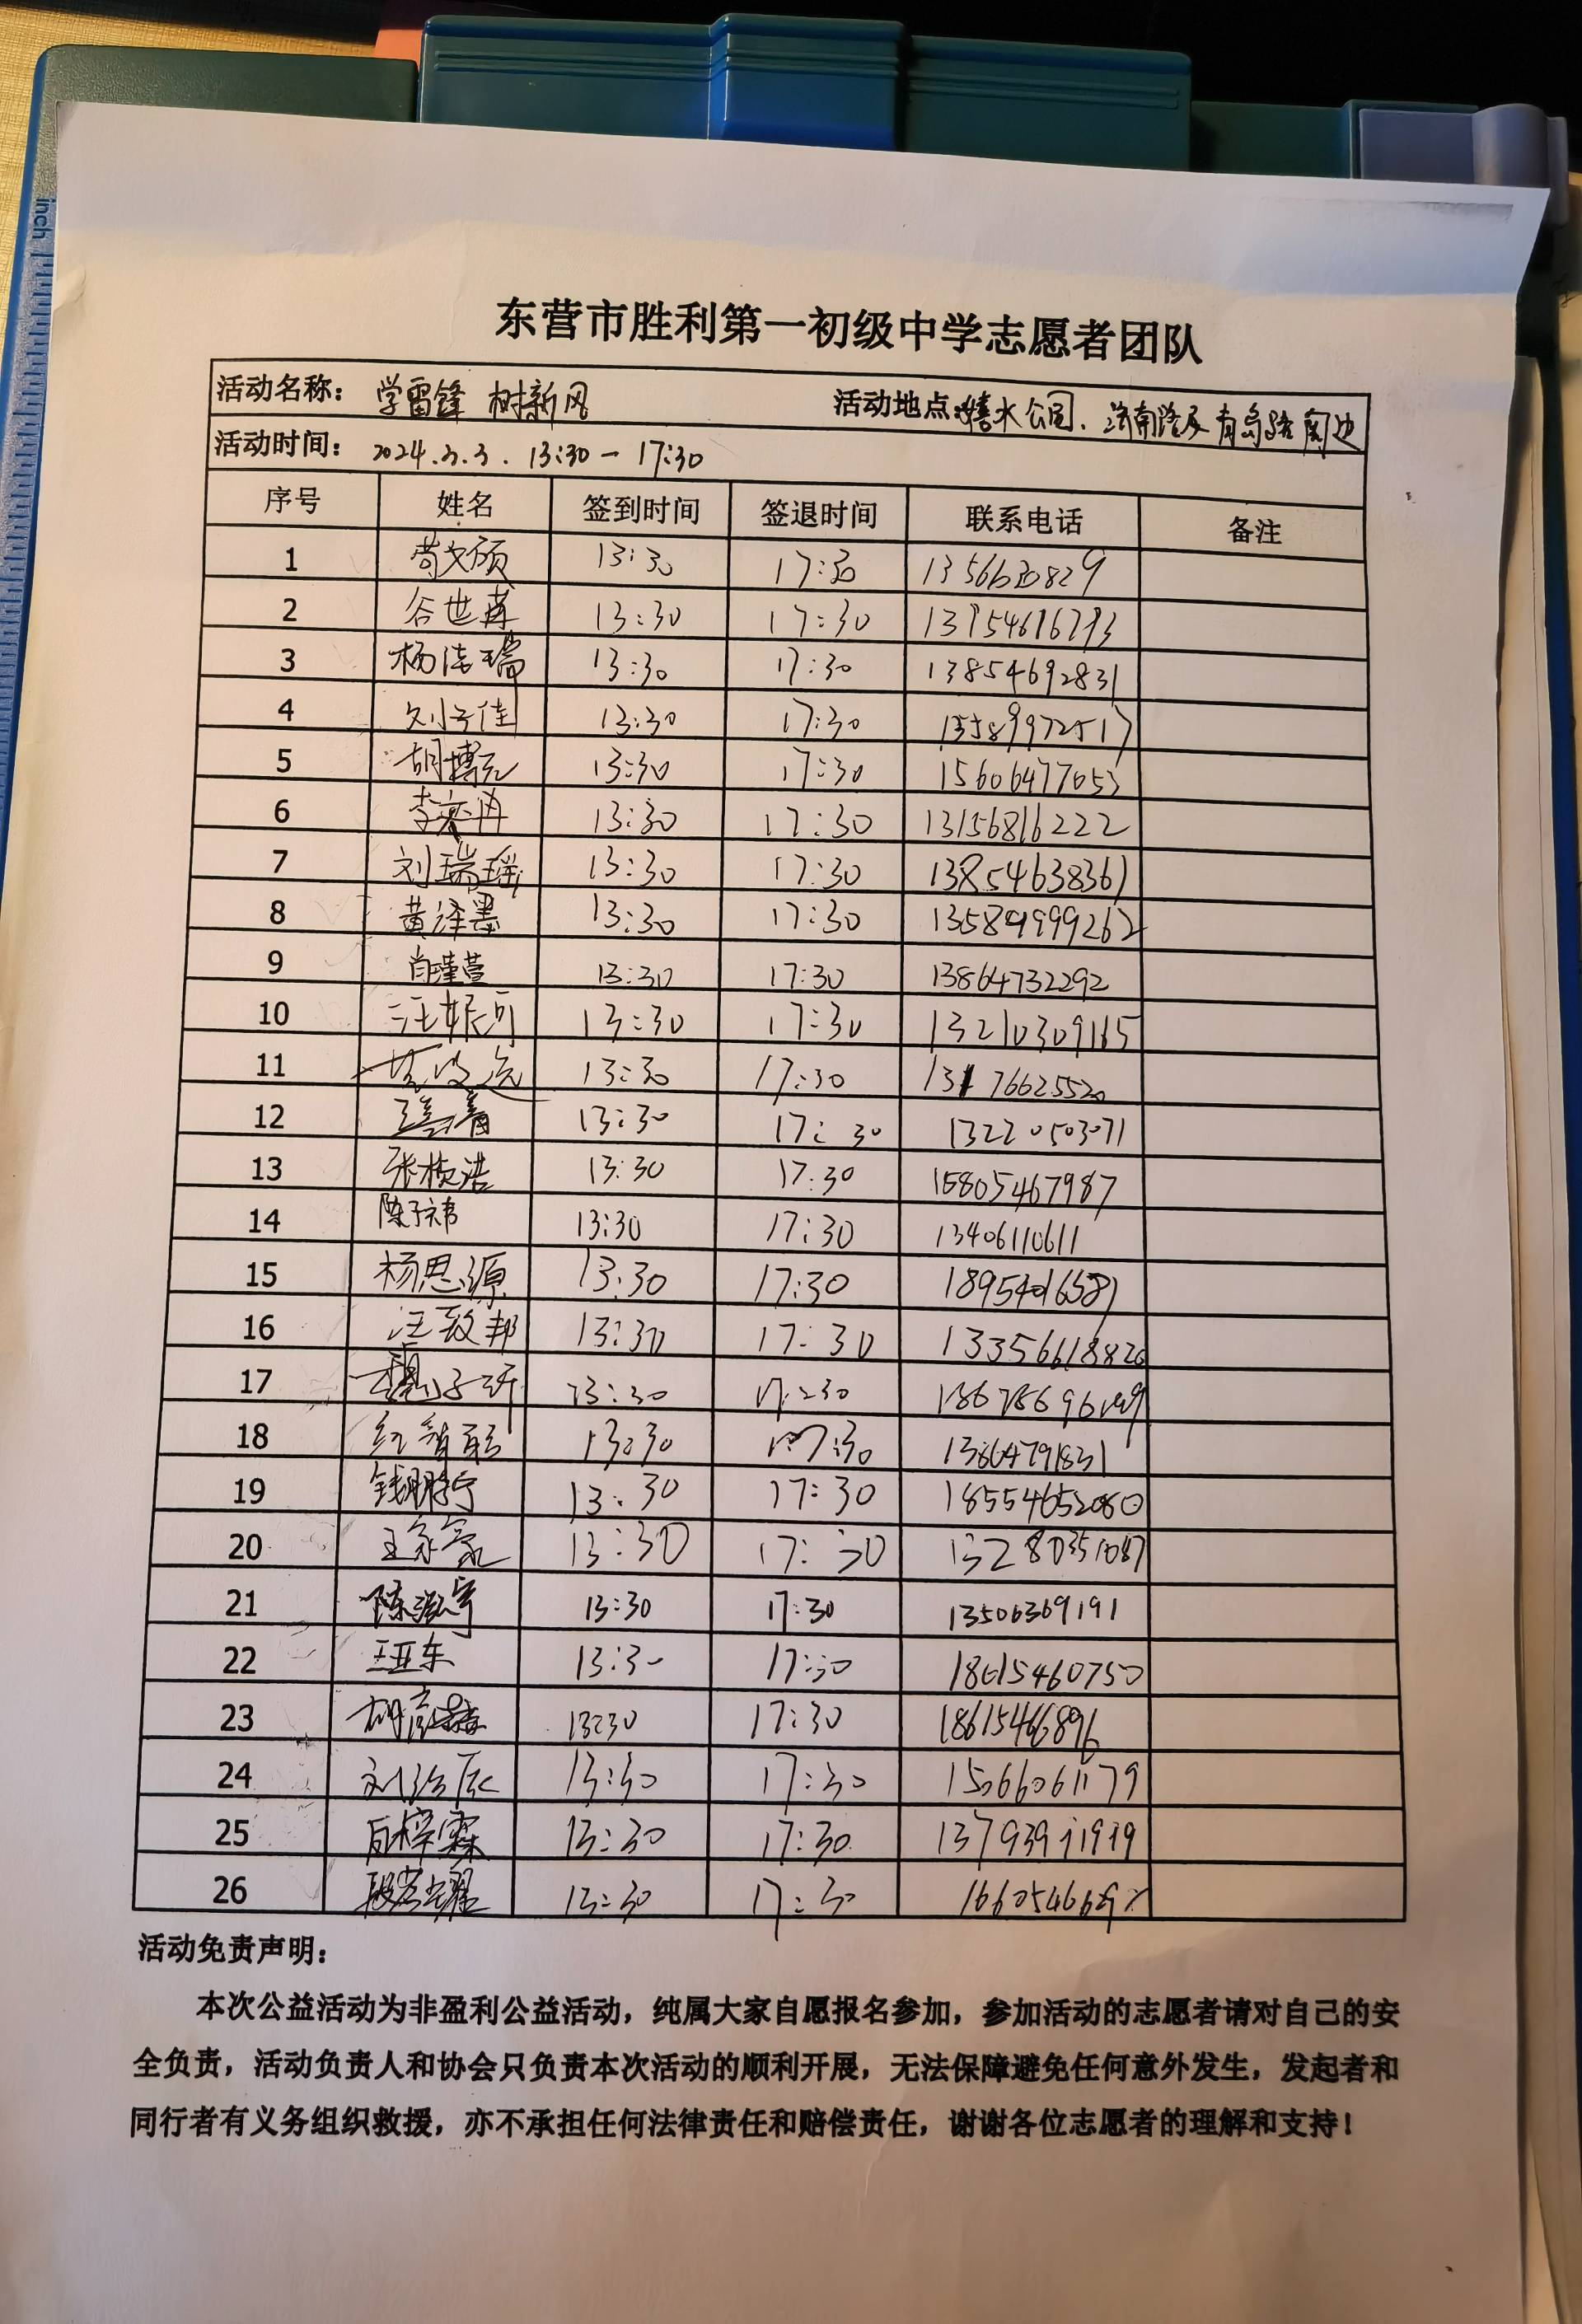 inch
东营市胜利第一初级中学志愿者团队
活动名称： 学雷锋 树新风 活动地点：嬉水公园、济南路及青岛路周边
活动时间： 2024.3.3. 13:30－17:30
序号 姓名 签到时间 签退时间 联系电话 备注
1 苟文硕 13:30 17:30
2 谷世苒 13:30 17:30 13954616793
3 杨洁瑞 13:30 17:30 13854692831
4 刘子佳 13:30 17:30 13589972517
5 胡博元 13:30 17:30 15606477053
6 李奕冉 13:30 17:30 13156816222
7 刘瑞瑶 13:30 17:30 13854638361
8 黄泽墨 13:30 17:30 13589999262
9 肖瑾萱 13:30 17:30 13864732292
10 13:30 17:30 13210309165
11 13:30 17:30 13176625520
12 13:30 17:30 13220503071
13 张桢浩 13:30 17:30 15805467987
14 陈子祎 13:30 17:30 13406110611
15 杨思源 13:30 17:30
16 汪致邦 13:30 17:30 13356618826
17 13:30 17:30
18 13:30 17:30 13864791831
19 13:30 17:30 18554652080
20 王家豪 13:30 17:30 13280351087
21 陈泓宇 13:30 17:30 13506369191
22 王亚东 13:30 17:30 18615460750
23 13:30 17:30 18615466896
24 13:30 17:30 15066061179
25 13:30 17:30
26 13:30 17:30
活动免责声明：
本次公益活动为非盈利公益活动，纯属大家自愿报名参加，参加活动的志愿者请对自己的安
全负责，活动负责人和协会只负责本次活动的顺利开展，无法保障避免任何意外发生，发起者和
同行者有义务组织救援，亦不承担任何法律责任和赔偿责任，谢谢各位志愿者的理解和支持！